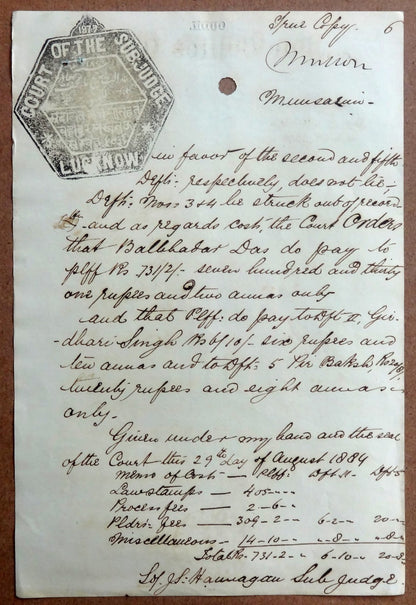 True Copy. 6
Munsarim
1877
COURT OF THE SUB-JUDGE
LUCKNOW
in favor of the second and fifth
Defts: respectively, does not lie-
Defts: Nos: 3 & 4 be struck out of record
and as regards cost, the Court Orders
that Balbhadar Das do pay to
plff Rs. 731/2/- seven hundred and thirty
one rupees and two annas only
and that Plff: do pay to Dft II, Gir-
dhari Singh Rs 6/10/- six rupees and
ten annas and to Dft: 5 Pir Baksh, Rs 20/8/-
twenty rupees and eight annas
only.
Given under my hand and the seal
of the Court this 29th day of August 1884
Memo of Cost - Plff: Dft II - Dft 5
Law stamps - 405 - -
Process fees - 2-6-
Pldrs: fees - 309-2-- 6-2-- 20--
Miscellaneous - 14-10-- "-8-- "-8-
Total Rs. 731-2-- 6-10- 20-8
Sd/ J.S. Hannagan Sub Judge.